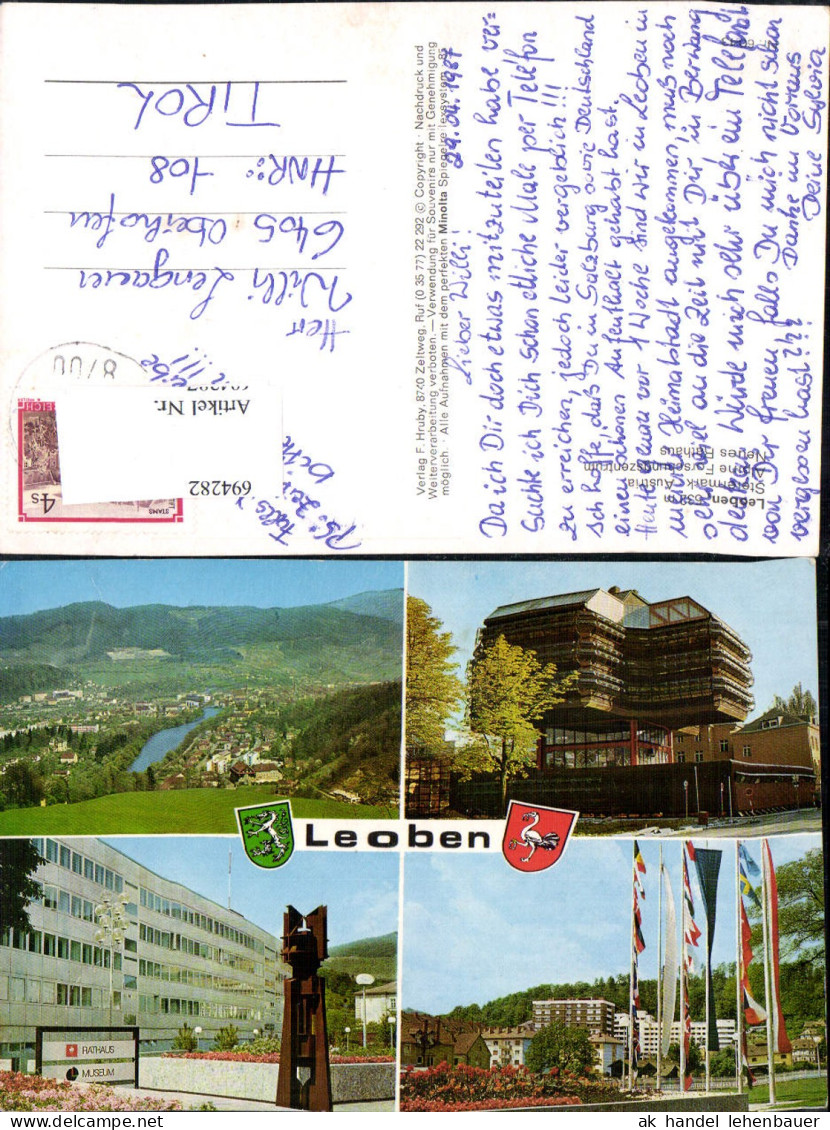 29.04.1987
Lieber Willi!
Da ich Dir doch etwas mitzuteilen habe ver=
suchte ich Dich schon etliche Male per Telefon
zu erreichen, jedoch leider vergeblich!!!
Ich hoffe, daß Du in Salzburg sowie Deutschland
einen schönen Aufenthalt gehabt hast.
Heute genau vor 1 Woche sind wir in Leoben in
meiner Heimatstadt angekommen, muß noch
sehr viel an die Zeit mit Dir in Berwang
denken. Würde mich sehr über ein Telefonat
von Dir freuen, falls Du mich nicht schon
vergessen hast???
Danke im Voraus
Deine Sylvia
Leoben, 532 m
Steiermark, Austria
Neues Rathaus
Verlag F. Hruby, 8740 Zeltweg. Ruf (0 35 77) 22 292 © Copyright · Nachdruck und
Weiterverarbeitung verboten. — Verwendung für Souvenirs nur mit Genehmigung
möglich. · Alle Aufnahmen mit dem perfekten Minolta Spiegelreflexsystem · 85
PS: Bitte
Falls
STAMS
4 S
694282
Artikel Nr.
8700
Herr
Willi Lengauer
6405 Oberhofen
HNR.: 108
TIROL
Leoben
RATHAUS
MUSEUM
ak handel lehenbauer